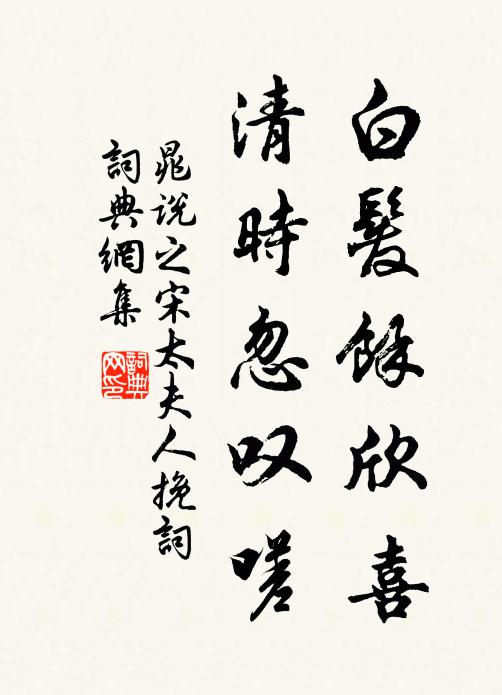 白髮餘欣喜
清時忽叹嗟
晁说之宋太夫人挽詞
詞典網集
詞典网印